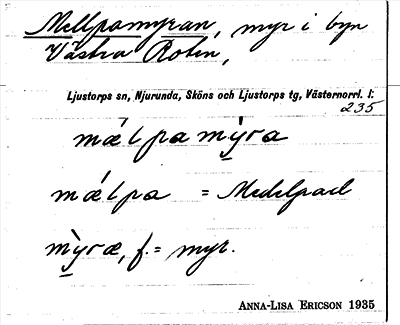 Mellpamyran, myr i byn
Västra Roten,
Ljustorps sn, Njurunda, Sköns och Ljustorps tg, Västernorrl. l:
235
mǽlpamỳ̠ra
mǽlpa = Medelpad
mỳ̠ræ, f. = myr.
ANNA-LISA ERICSON 1935